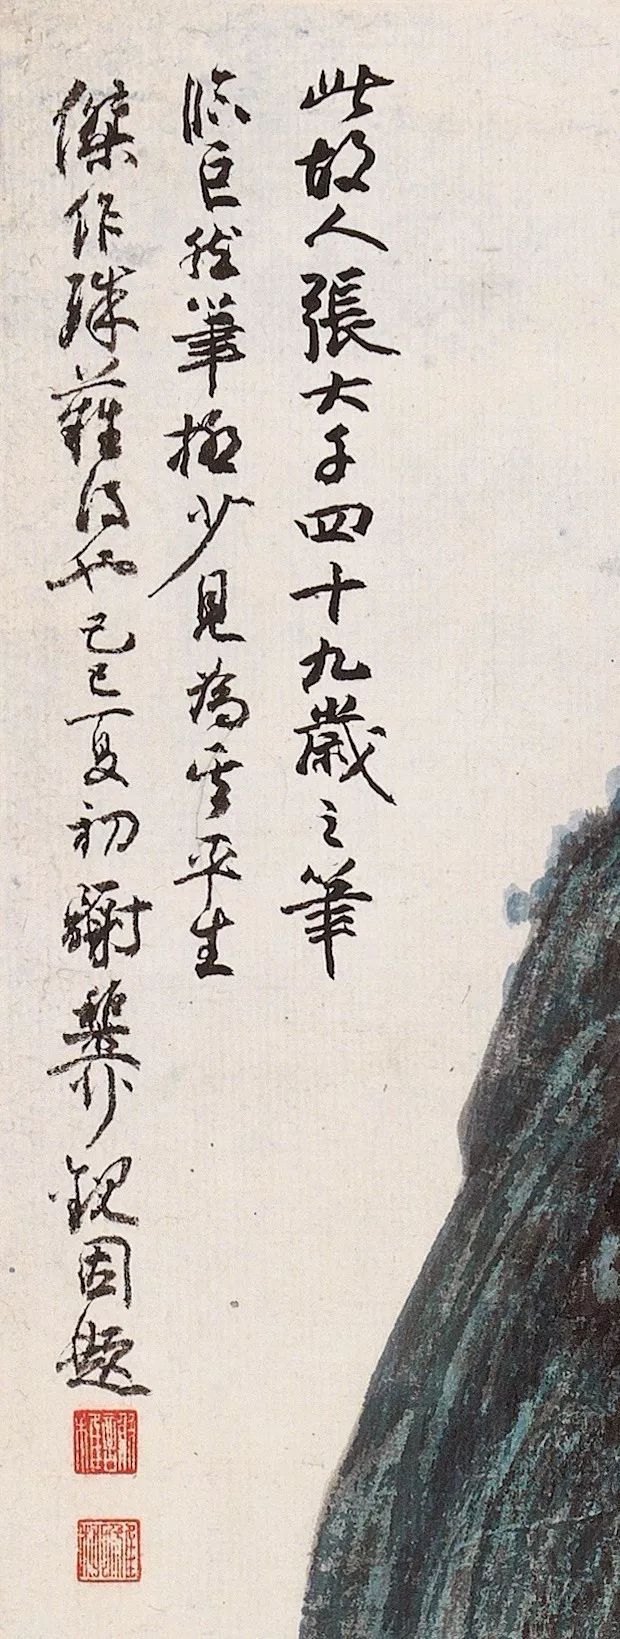 此故人張大千四十九歲之筆
臨巨然筆極少見為其平生
傑作殊難得也己巳夏初謝稚柳觀因題